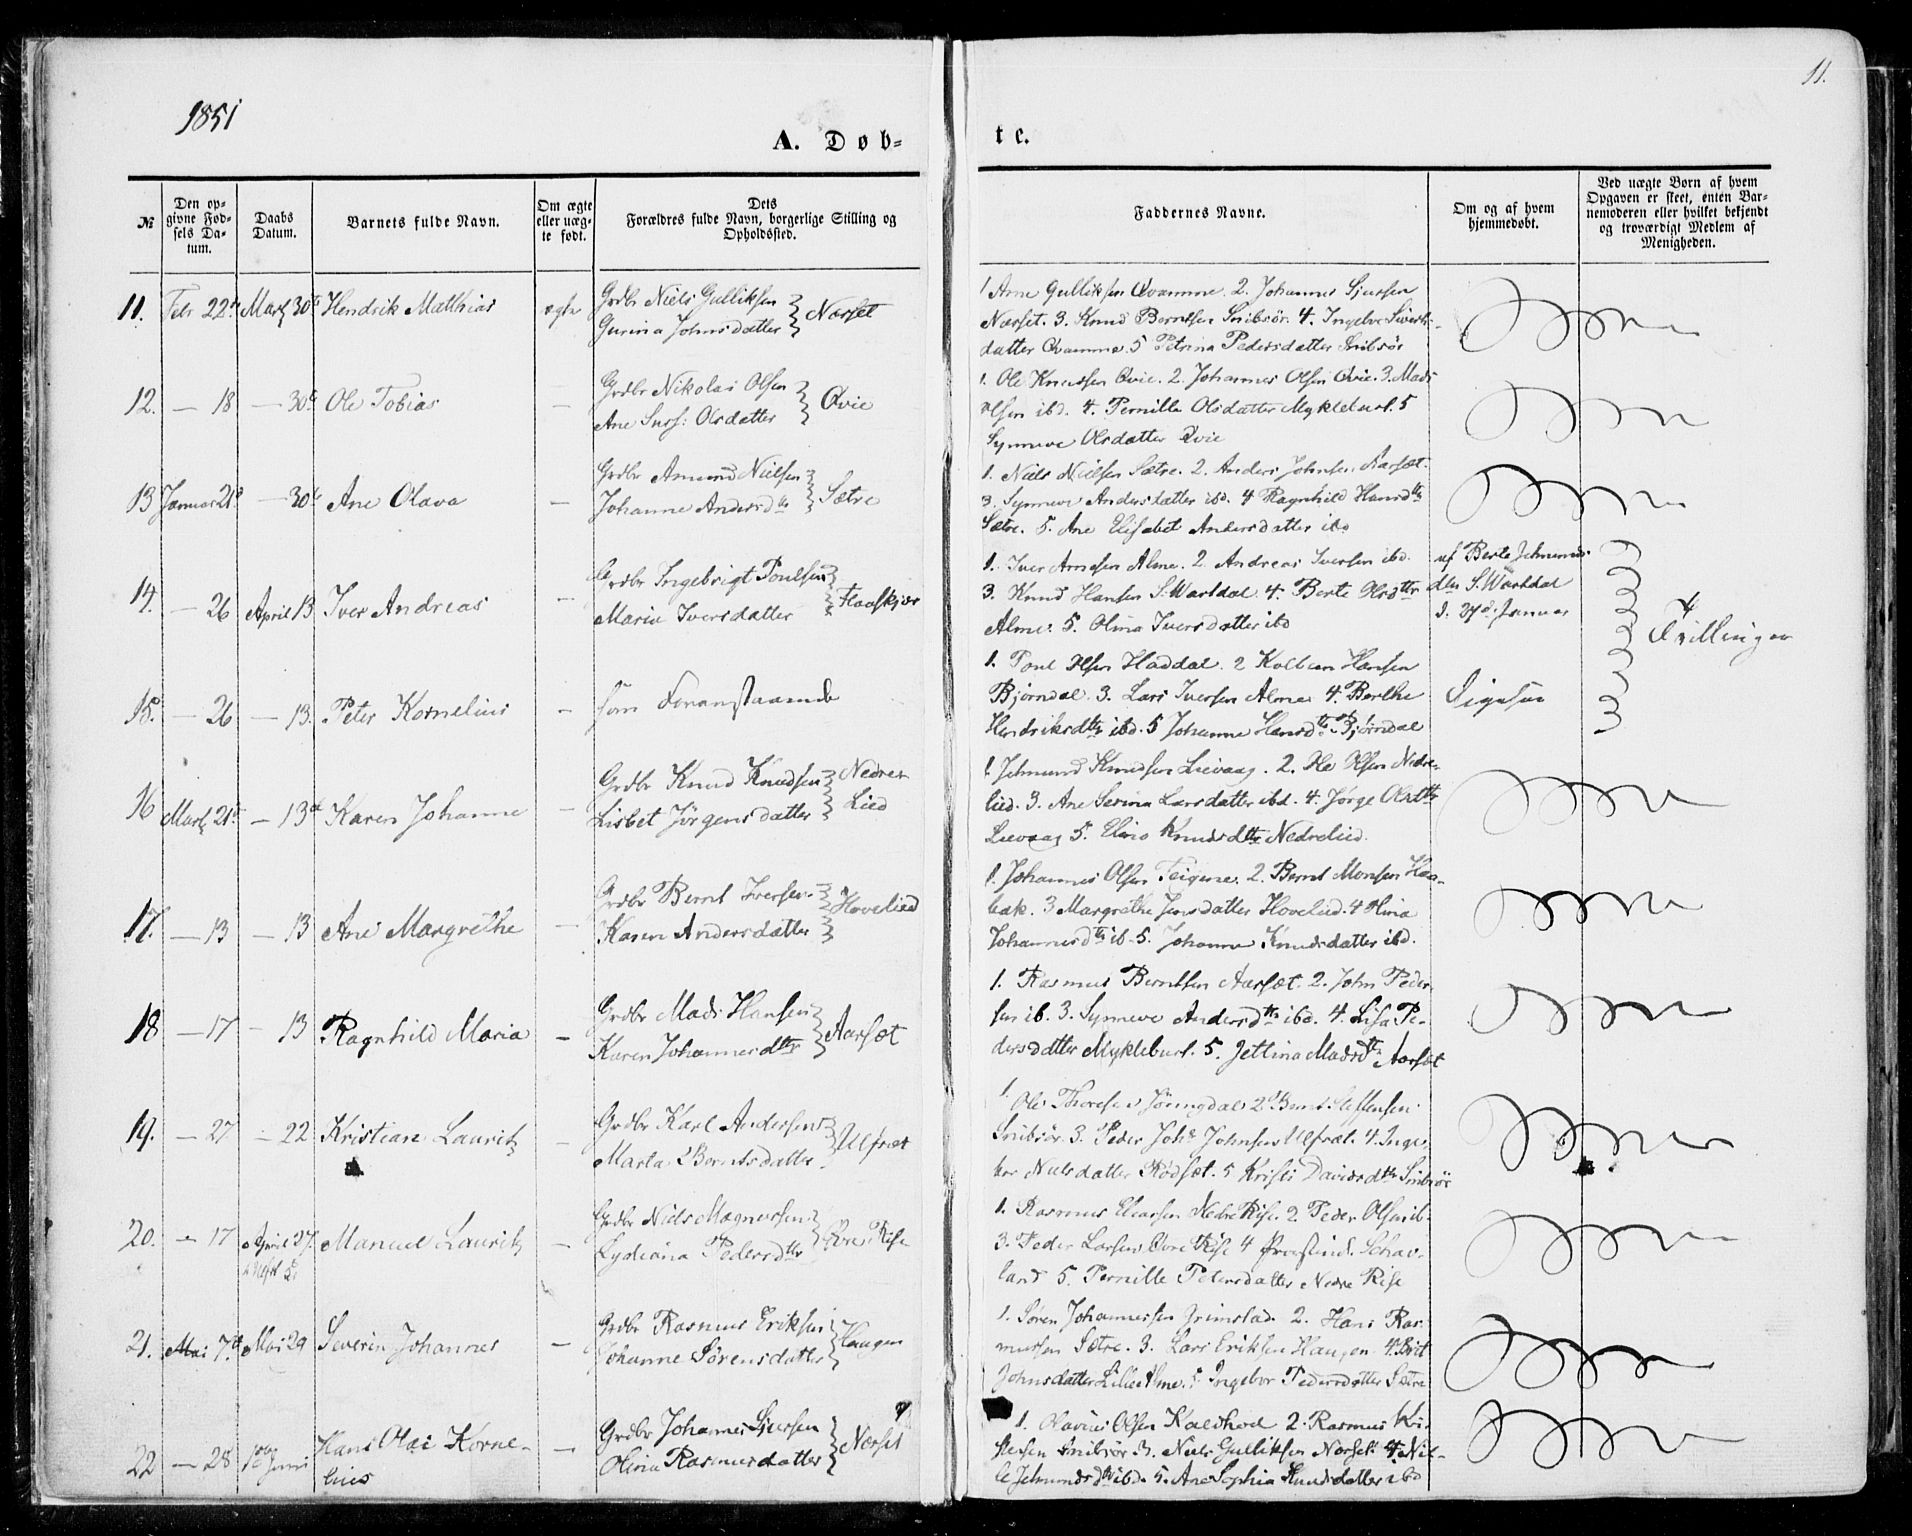 1851
11.
A. Døb=
te.
№
Den op-
givne Fød-
sels Da-
tum.
Daabs
Datum.
Barnets fulde Navn.
Om ægte
eller uæg-
te født.
Dets
Forældres fulde Navn, borgerlige Stilling og
Opholdssted.
Faddernes Navne.
Om og af hvem
hjemmedøbt.
Ved uægte Børn af hvem
Opgaven er skeet, enten Bar-
nemoderen eller hvilket bekjendt
og troværdigt Medlem af
Menigheden.
11. Febr 22 Marts 30 Hendrik Matthias ægte Grdbr Niels Gulliksen
Gurina Johnsdatter Nærset
1 Arne Gulliksen Qvamme. 2. Johannes Sjursen
Nærset. 3. Knud Berntsen Snibsör. 4. Ingebor Siverts-
datter Qvamme 5 Petrina Pedersdatter Snibsör
12. — 18 — 30 Ole Tobias — Grdbr Nikolai Olsen
Ane Olsdatter Qvie
1. Ole Knudsen Qvie. 2. Johannes Olsen Qvie. 3. Mads
Olsen ibd. 4. Pernille Olsdatter Myklebust. 5
Synneve Olsdatter Qvie
13 Januar 21 — 30 Ane Olava — Grdbr Amund Nielsen
Johanne Andersdtr Sætre
1. Niels Nielsen Sætre. 2. Anders Johnsen Aarsæt.
3. Synneve Andersdatter ibd. 4 Ragnhild Hansdtr
Sætre. 5. Ane Elisabet Andersdatter ibd
14. — 26 April 13 Iver Andreas — Grdbr Ingebrigt Poulsen
Maria Iversdatter Flaaskjær
1. Iver Arnesen Alme. 2. Andreas Iversen ibd.
3. Knud Hansen S. Vartdal 4. Berte Olsdtr
Alme. 5. Olina Iversdatter ibd
af Berte Jetmunds
dtr S. Vartdal
d. 27d. Januar
Tvillinger
15. — 26 — 13. Peter Kornelius — som Foranstaaende
1. Poul Olsen Haddal. 2 Kolbein Hansen
Bjørndal. 3. Lars Iversen Alme 4. Berthe
Hendriksdtr ibd. 5 Johanne Hansdtr Bjørndal
Ligesaa
16 Marts 21 — 13 Karen Johanne — Grdbr Knud Knudsen
Lisbet Jörgensdatter Nedre
Lied
1. Jetmund Knudsen Lievaag. 2. Ole Olsen Nedre-
lied. 3. Ane Serina Larsdatter ibd. 4. Jørge Olsdtr
Lievaag 5. Knudsdtr Nedrelied.
17. — 13 — 13 Ane Margrethe — Grdbr Bernt Iversen
Karen Andersdatter Hovelied
1. Johannes Olsen Teigene. 2. Bernt Monsen Haa-
bak. 3 Margrethe Jensdatter Hovelied. 4 Olina
Johannesdtr ib. 5. Johanne Knudsdatter ibd.
18 — 17 — 13 Ragnhild Maria — Grdbr Mads Hansen
Karen Johannesdtr Aarsæt
1. Rasmus Berntsen Aarsæt. 2. John Peder-
sen ib. 3. Synneve Andersdtr ibd. 4. Lisa Pe-
dersdatter Myklebust. 5. Jettina Madsdtr Aarsæt
19. — 27 — 22 Kristian Laurits — Grdbr Karl Andersen
Marta Berntsdatter Ulfsæt
1. Ole Thoresen 2 Bernt Steffensen
Snibsör. 3. Peder Johs Johnsen Ulfsæt. 4. Inge-
bor Nielsdatter Rödsæt. 5 Kristi Davidsdtr Snibsör
20. — 17 April 27. Manuel Laurits — Grdbr Niels Magnussen
Lydiana Pedersdtr Øvre Rise
1. Rasmus Eliassen Nedre Rise. 2. Peder Olsen ib.
3. Peder Larsen Øvre Rise 4 Prestind. Schav-
land 5. Pernille Petersdatter Nedre Rise
21. Mai 7. Mai 29 Severin Johannes — Grdbr Rasmus Eriksen
Johanne Sörensdatter Haugen
1. Søren Johannessen Grimstad. 2. Hans Ras-
mussen Sætre. 3. Lars Eriksen Haugen. 4. Brit
Johnsdatter Lille Alme. 5. Ingebor Pedersdatter Sætre
22 — 28 Juni Hans Olai Korne-
lius — Grdbr Johannes Sjursen
Olina Rasmusdatter Nærset
1. Olavius Olsen Kaldhol 2. Rasmus Kri-
stensen Snibsör 3. Niels Gulliksen Nærset. 4. Nil-
le Jetmundsdtr ibd. 5. Ane Sophia Knudsdatter ibd